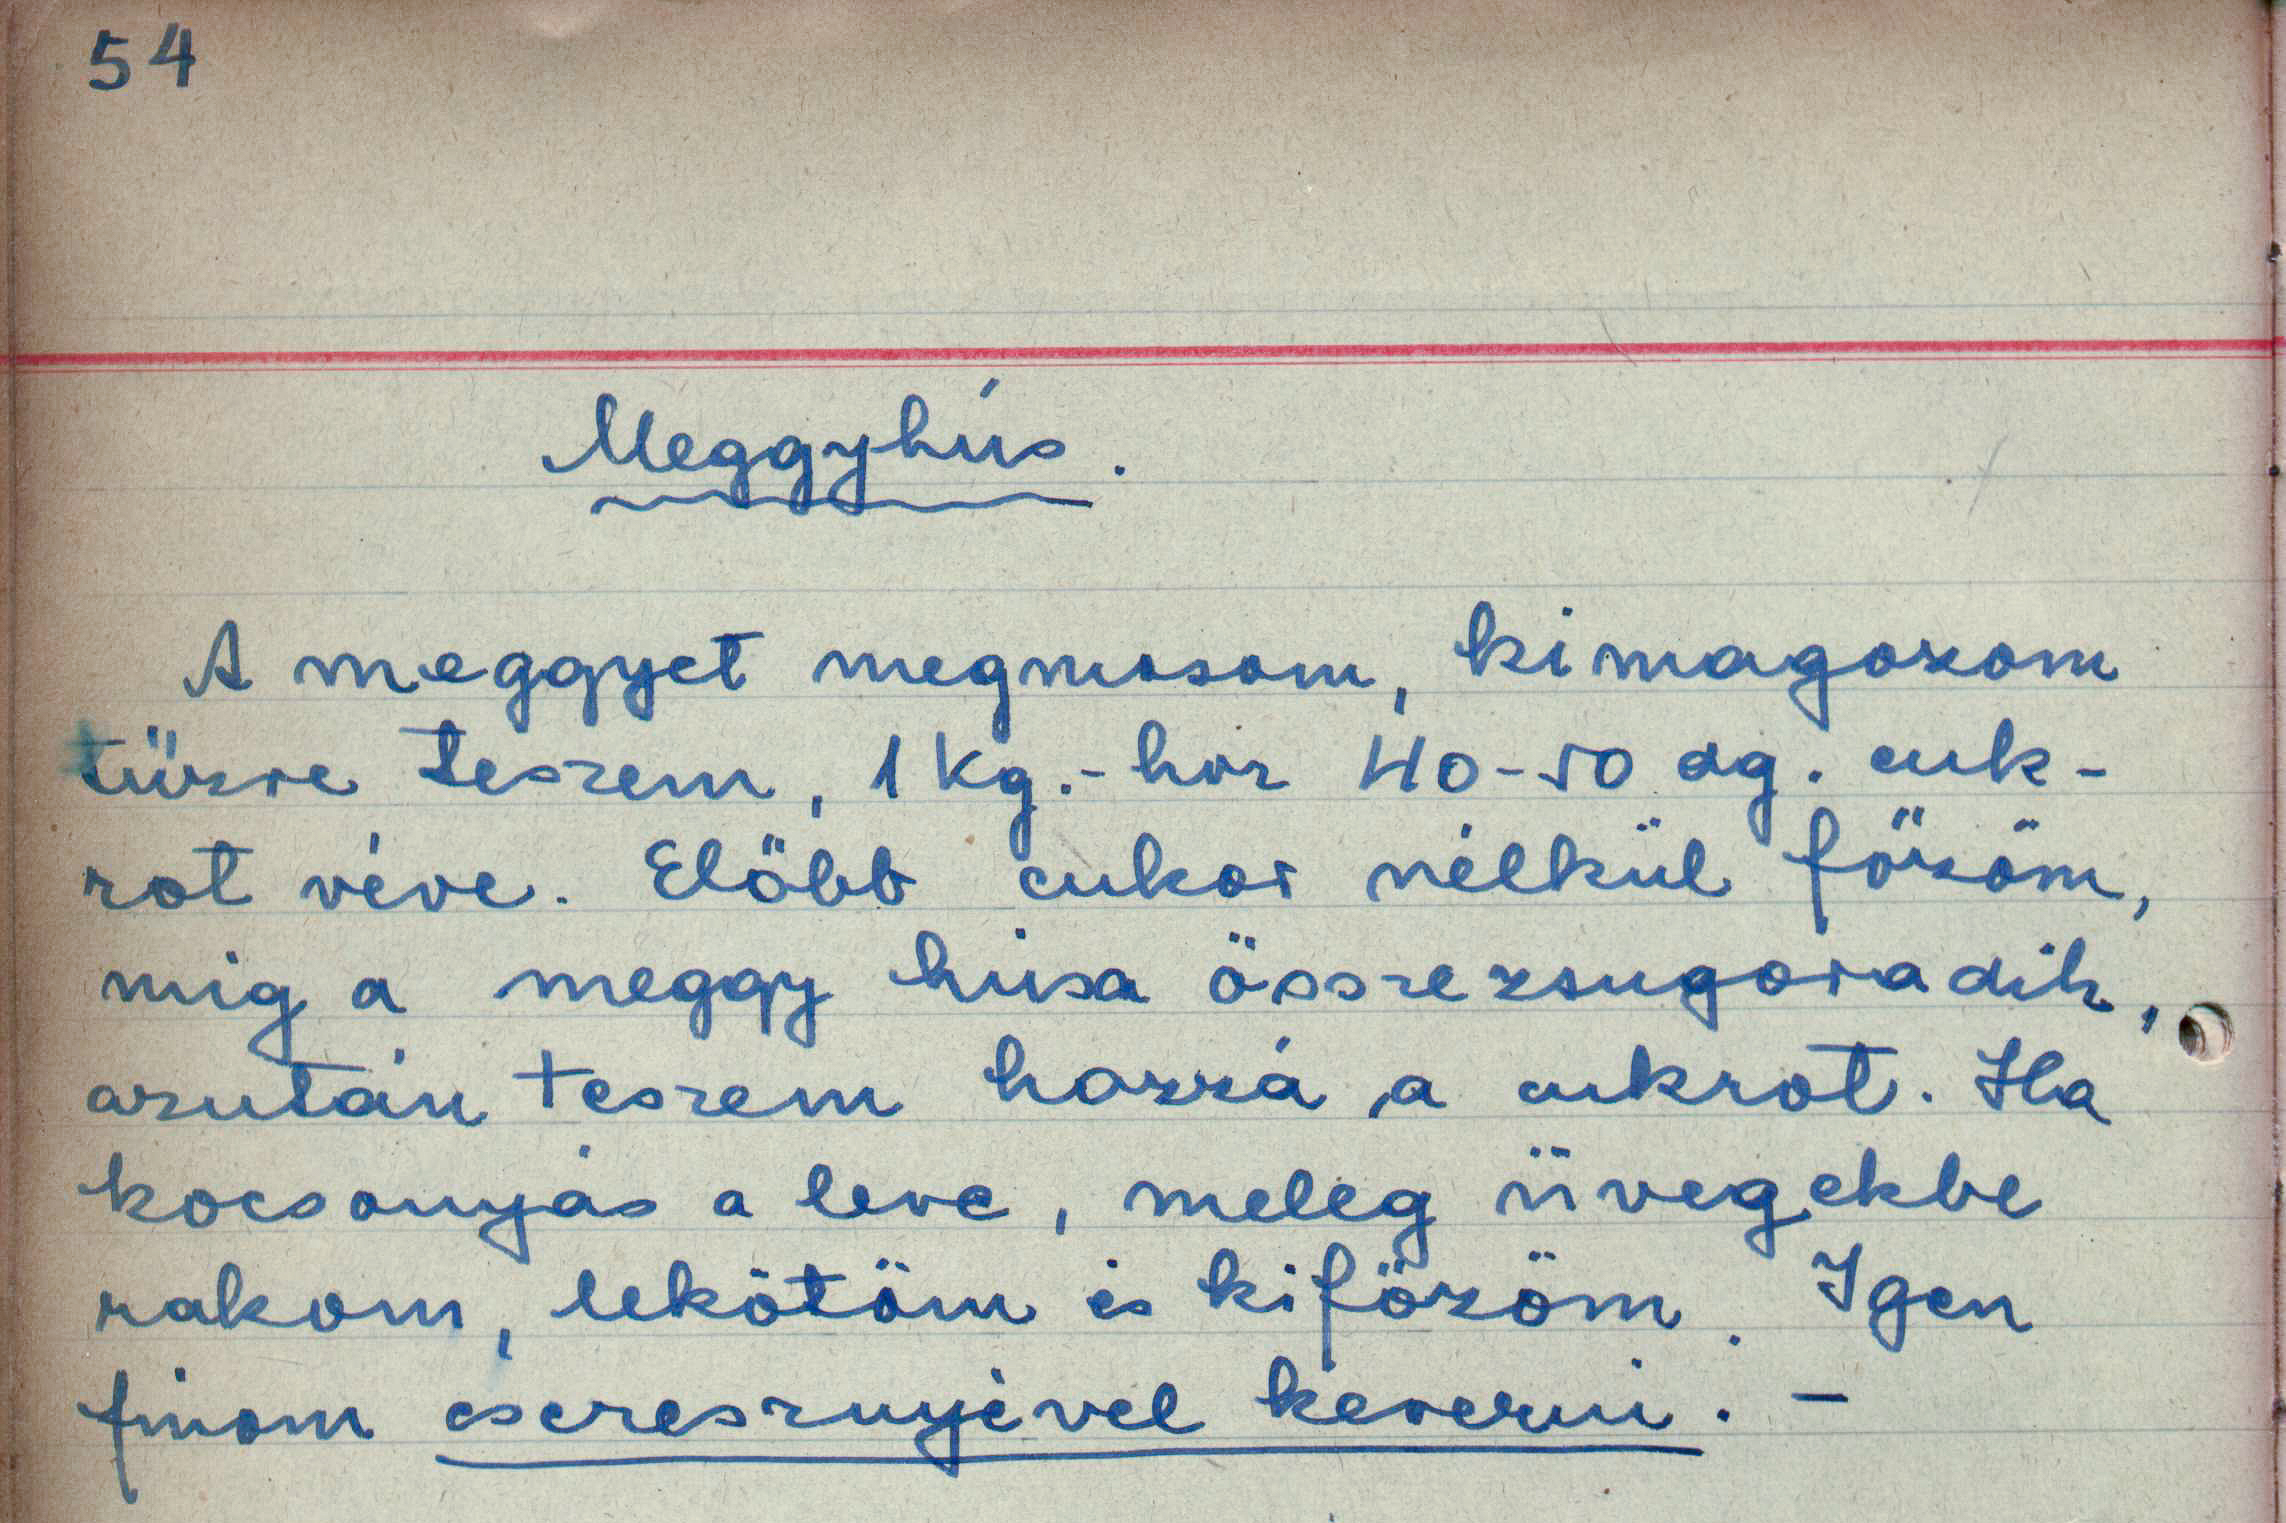 54
Meggyhús.
A meggyet megmosom, kimagozom
tűzre teszem, 1 kg.-hoz 40-50 dg. cuk-
rot véve. Előbb cukor nélkül főzöm,
mig a meggy húsa összezsugorodik,
azután teszem hozzá a cukrot. Ha
kocsonyás a leve, meleg üvegekbe
rakom, lekötöm és kifőzöm. Igen
finom cseresznyével keverni. -